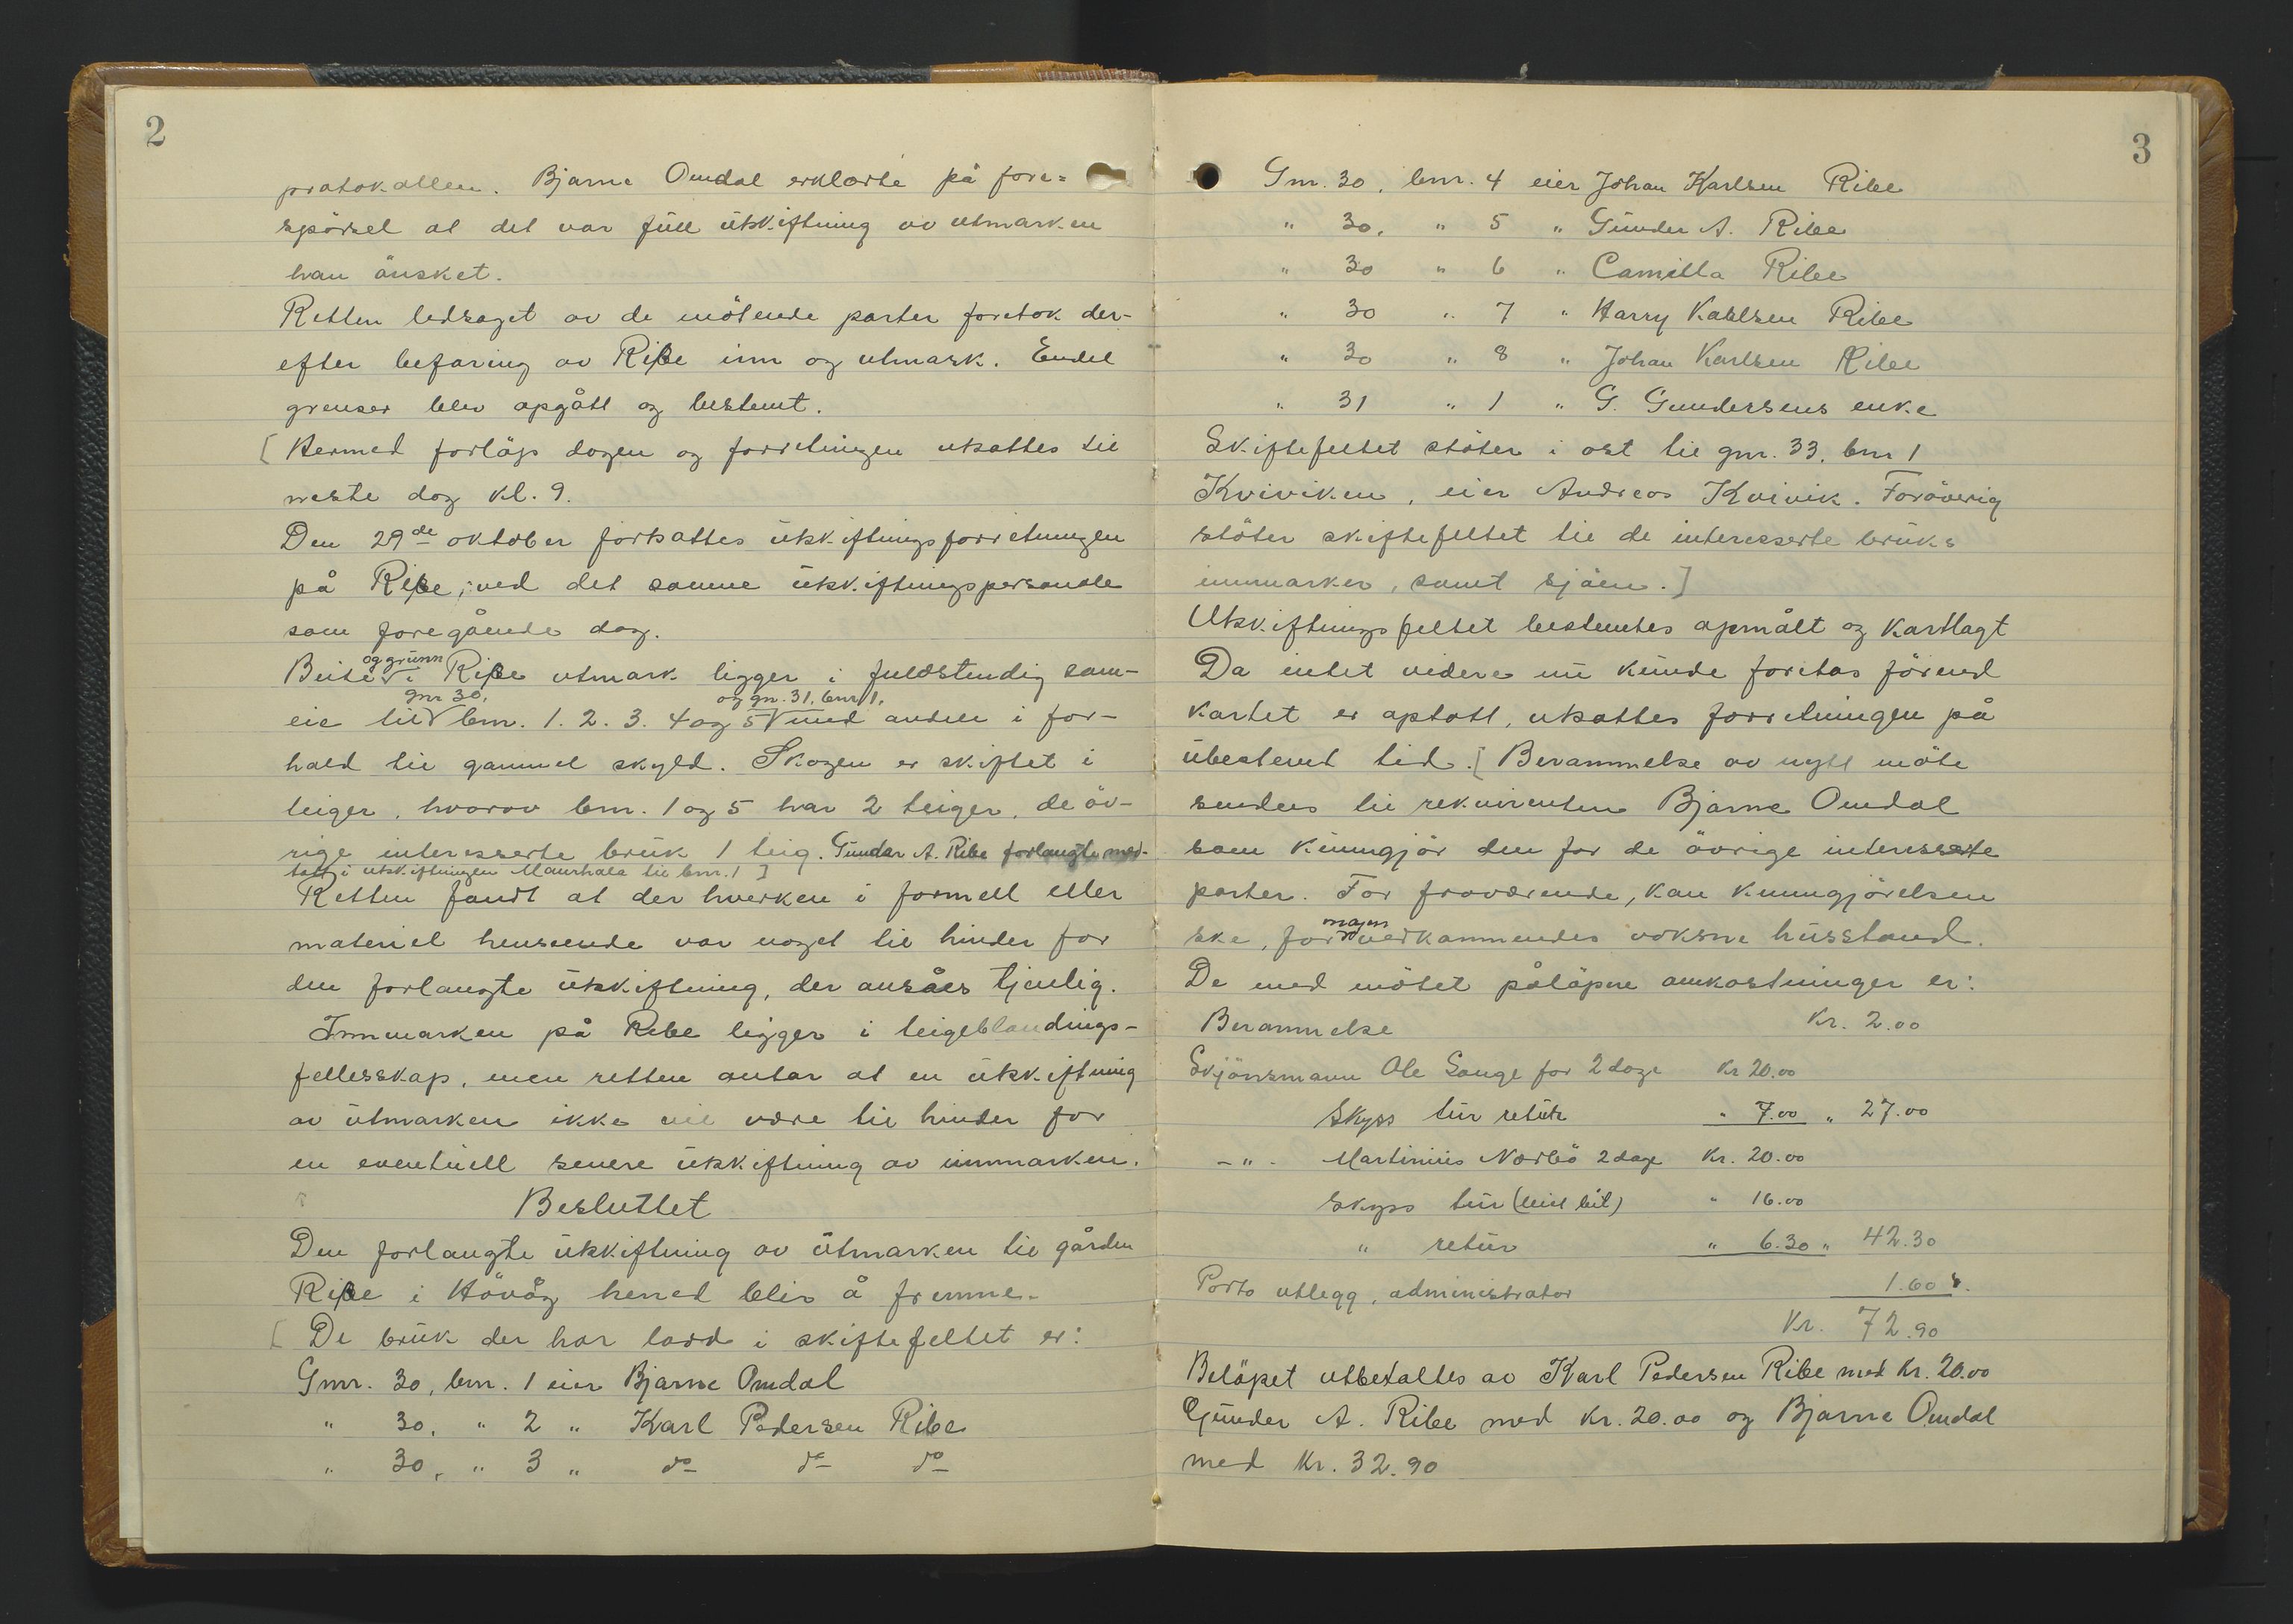 2
protokollen. Bjarne Omdal erklærte på fore=
spörsel at det var full utskiftning av utmarken
han önsket.
Retten ledsaget av de mötende parter foretok der-
efter befaring av Ribe inn og utmark. Endel
grenser blev opgått og bestemt.
[ Hermed forlöp dagen og forretningen utsattes til
neste dag kl. 9.
Den 29de oktober fortsattes utskiftningsforretningen
på Ribe, ved det samme utskiftningspersonale
som foregående dag.
og grunn
Beite √ i Ribe utmark ligger i fuldstendig sam-
gnr 30, og gn. 31, bnr 1,
eie til √ bnr. 1. 2. 3. 4 og 5 √ med andele i for-
hold til gammel skyld. Skogen er skiftet i
teiger, hvorav bnr. 1 og 5 har 2 teiger, de öv-
rige interesserte bruk 1 teig. Gunder A. Ribe forlangte med-
tatt i utskiftningen Maurhala til bnr. 1 ]
Retten fandt at der hverken i formell eller
materiel henseende var noget til hinder for
den forlangte utskiftning, der ansåes tjenlig.
Innmarken på Ribe ligger i teigeblandings-
fellesskap, men retten antar at en utskiftning
av utmarken ikke vil være til hinder for
en eventuell senere utskiftning av innmarken.
Besluttet
Den forlangte utskiftning av utmarken til gården
Ribe i Hövåg herred blir å fremme.
[ De bruk der har lodd i skiftefeltet er:
Gnr. 30, bnr. 1 eier Bjarne Omdal
" 30, " 2 " Karl Pedersen Ribe
" 30, " 3 " do do do
3
Gnr. 30, bnr. 4 eier Johan Karlsen Ribe
" 30, " 5 " Gunder A. Ribe
" 30 " 6 " Camilla Ribe
" 30 " 7 " Harry Kahlsen Ribe
" 30 " 8 " Johan Karlsen Ribe
" 31 " 1 " G. Gundersens enke
Skiftefeltet stöter i öst til gnr. 33. bnr 1
Kviviken, eier Andreas Kvivik. Foröverig
stöter skiftefeltet til de interesserte bruks
innmarker, samt sjöen. ]
Utskiftningsfeltet bestemtes opmålt og kartlagt
Da intet videre nu kunde foretas förend
kartet er optatt, utsattes forretningen på
ubestemt tid. [ Berammelse av nytt möte
sendes til rekvirenten Bjarne Omdal
som kunngjör den for de övrige interesserte
parter. For fraværende, kan kunngjörelsen
nogen
ske, for √ vedkommendes voksne husstand.
De med mötet pålöpne omkostninger er:
Berammelse Kr. 2.00
Skjönsmann Ole Sange for 2 dage Kr 20.00
Skyss tur retur " 7.00 " 27.00
- " - Martinius Nærbö 2 dage Kr. 20.00
Skyss tur (leiet bil) " 16.00
" retur " 6.30 " 42.30
Porto utlegg, administrator 1.60
Kr. 72.90
Belöpet utbetaltes av Karl Pedersen Ribe med kr. 20.00
Gunder A. Ribe med kr. 20.00 og Bjarne Omdal
med Kr. 32.90